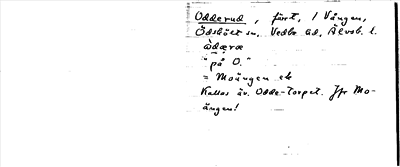 Odderud, förr, i Vången,
Ödshult sn, Vedbo hd, Älvsb. l.
òdæræ
"på O."
= Moängen ek
Kallas äv. Odde-Torpet. Jfr Mo-
ängen!